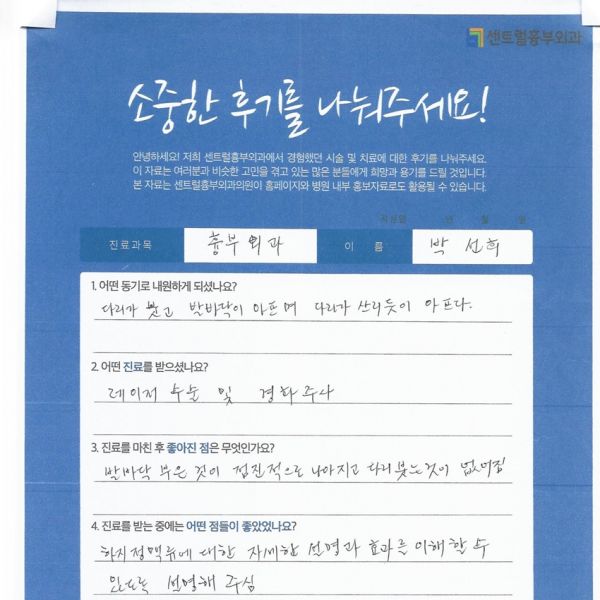 센트럴흉부외과
소중한 후기를 나눠주세요!
안녕하세요! 저희 센트럴흉부외과에서 경험했던 시술 및 치료에 대한 후기를 나눠주세요.
이 자료는 여러분과 비슷한 고민을 겪고 있는 많은 분들에게 희망과 용기를 드릴 것입니다.
본 자료는 센트럴흉부외과의원이 홈페이지와 병원 내부 홍보자료로도 활용될 수 있습니다.
작성일 년 월 일
진료과목 흉부외과 이 름 박선희
1. 어떤 동기로 내원하게 되셨나요?
다리가 붓고 발바닥이 아프며 다리가 쓰리듯이 아프다.
2. 어떤 진료를 받으셨나요?
레이저 수술 및 경화주사
3. 진료를 마친 후 좋아진 점은 무엇인가요?
발바닥 부은 것이 점진적으로 나아지고 다리 붓는것이 없어짐
4. 진료를 받는 중에는 어떤 점들이 좋았었나요?
하지정맥류에 대한 자세한 설명과 효과를 이해할 수
있도록 설명해 주심